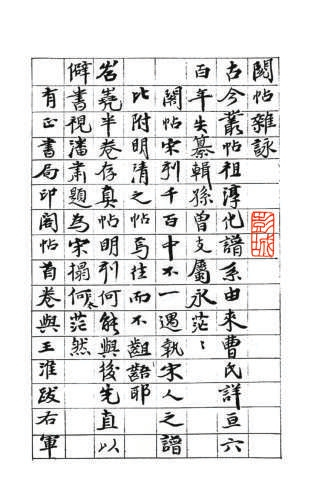 閣帖雜詠
古今叢帖祖淳化譜系由來曹氏詳亘六
百年失纂輯孫曾支屬永茫〻
閣帖宋刊千百中不一遇執宋人之譜
比附明清之帖焉往而不齟齬耶
岧嶤半卷存真帖明刊何能與後先直以
僻書視潘肅題為宋搨何太茫然
有正書局印閣帖首卷與王淮跋右軍
彭城